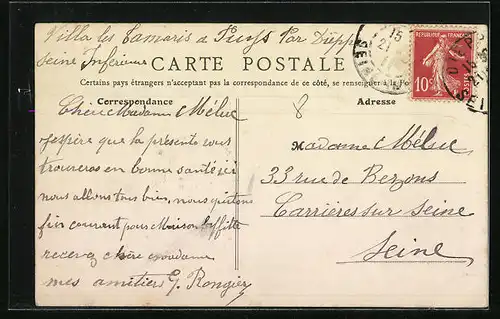 Villa les Tamaris à Puys Par Dieppe
Seine Inferieure
CARTE POSTALE
Certains pays étrangers n'acceptant pas la correspondance de ce côté, se renseigner à la Poste
Correspondance
Adresse
REPUBLIQUE FRANÇAISE
10c
15
21
8
Chère Madame Mélue
j'espère que la présente vous
trouveras en bonne santé ici
nous allons tous bien, nous quittons
fin courant pour Maison Laffitte
recevez chère madame
mes amitiés G. Rongier
Madame Mélue
33 rue de Bezons
Carrières sur Seine
Seine